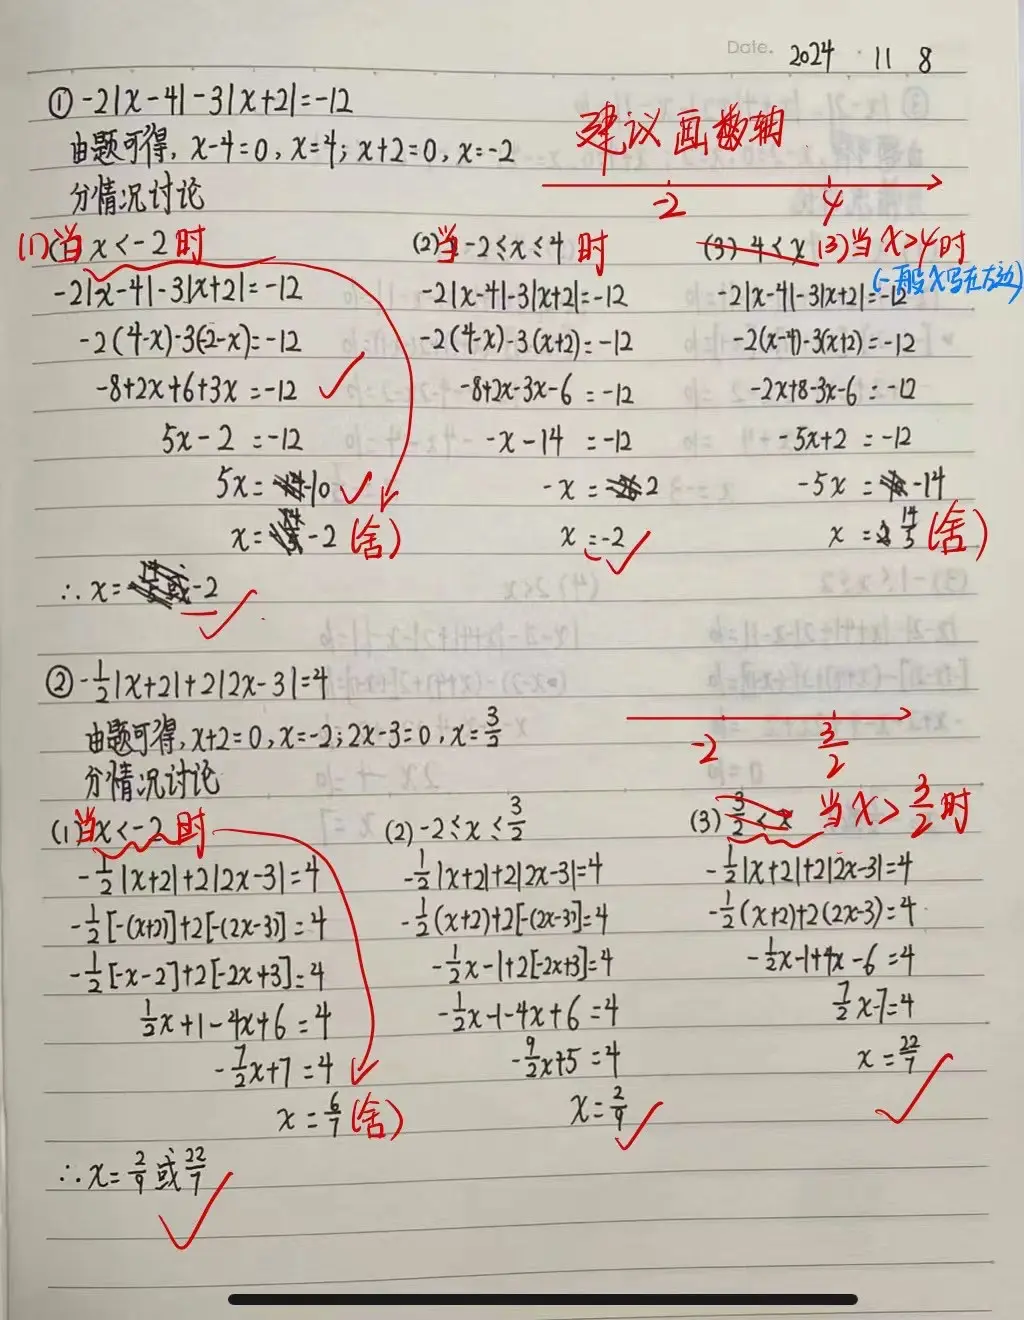 Date. 2024 . 11 8
① -2|x-4|-3|x+2|=-12
建议画数轴
由题可得, x-4=0, x=4; x+2=0, x=-2
-2 4
分情况讨论
(1)当 x<-2 时
-2|x-4|-3|x+2|=-12
-2(4-x)-3(-2-x)=-12
-8+2x+6+3x=-12
5x-2=-12
5x=-10
x=-2 (舍)
(2)当 -2≤x≤4 时
-2|x-4|-3|x+2|=-12
-2(4-x)-3(x+2)=-12
-8+2x-3x-6=-12
-x-14=-12
-x=2
x=-2
(3) 4<x (3)当 x>4 时
(一般x写在左边)
-2|x-4|-3|x+2|=-12
-2(x-4)-3(x+2)=-12
-2x+8-3x-6=-12
-5x+2=-12
-5x=-14
x=14/5 (舍)
∴x=-2
② -1/2|x+2|+2|2x-3|=4
由题可得, x+2=0, x=-2; 2x-3=0, x=3/2
-2 3/2
分情况讨论
(1)当x<-2 时
-1/2|x+2|+2|2x-3|=4
-1/2[-(x+2)]+2[-(2x-3)]=4
-1/2[-x-2]+2[-2x+3]=4
1/2x+1-4x+6=4
-7/2x+7=4
x=6/7 (舍)
(2) -2≤x≤3/2
-1/2|x+2|+2|2x-3|=4
-1/2(x+2)+2[-(2x-3)]=4
-1/2x-1+2[-2x+3]=4
-1/2x-1-4x+6=4
-9/2x+5=4
x=2/9
(3) 3/2<x 当x>3/2时
-1/2|x+2|+2|2x-3|=4
-1/2(x+2)+2(2x-3)=4
-1/2x-1+4x-6=4
7/2x-7=4
x=22/7
∴x=2/9或22/7